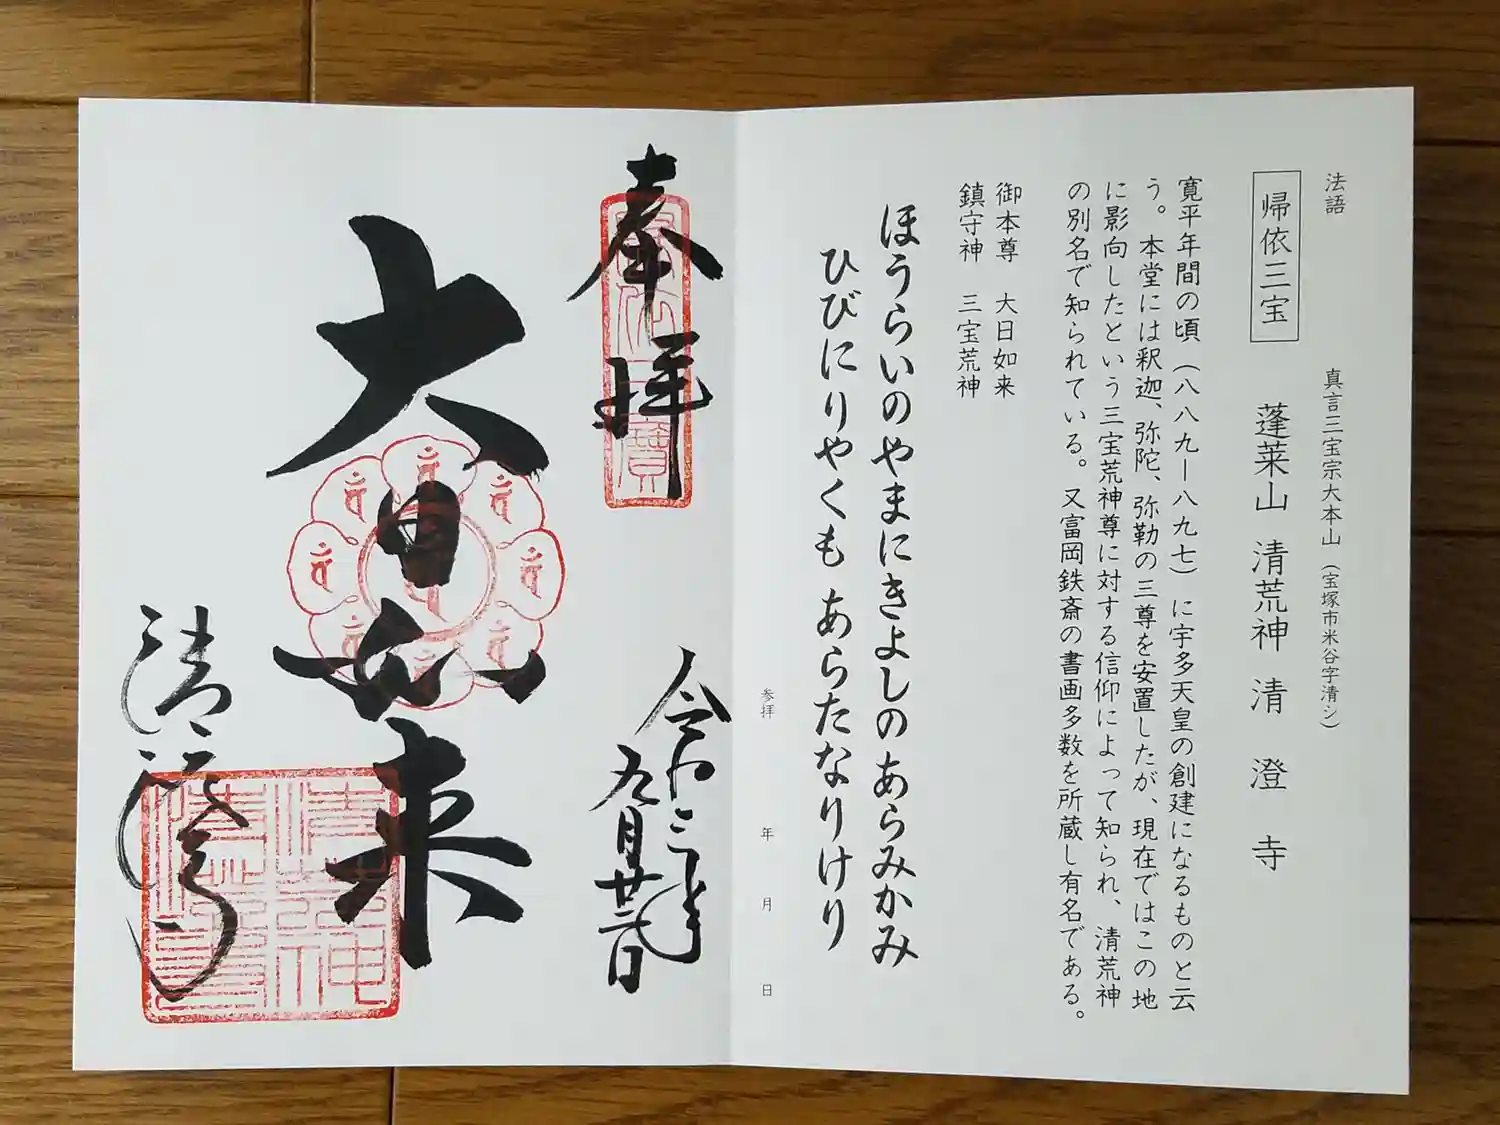 法語
帰依三宝
真言三宝宗大本山（宝塚市米谷字清シ）
蓬莱山 清荒神 清澄寺
寛平年間の頃（八八九ー八九七）に宇多天皇の創建になるものと云
う。本堂には釈迦、弥陀、弥勒の三尊を安置したが、現在ではこの地
に影向したという三宝荒神尊に対する信仰によって知られ、清荒神
の別名で知られている。又富岡鉄斎の書画多数を所蔵し有名である。
御本尊 大日如来
鎮守神 三宝荒神
ほうらいのやまにきよしのあらみかみ
ひびにりやくも あらたなりけり
参拝 年 月 日
奉拝
令和三年
九月廿二日
大日如来
清澄寺